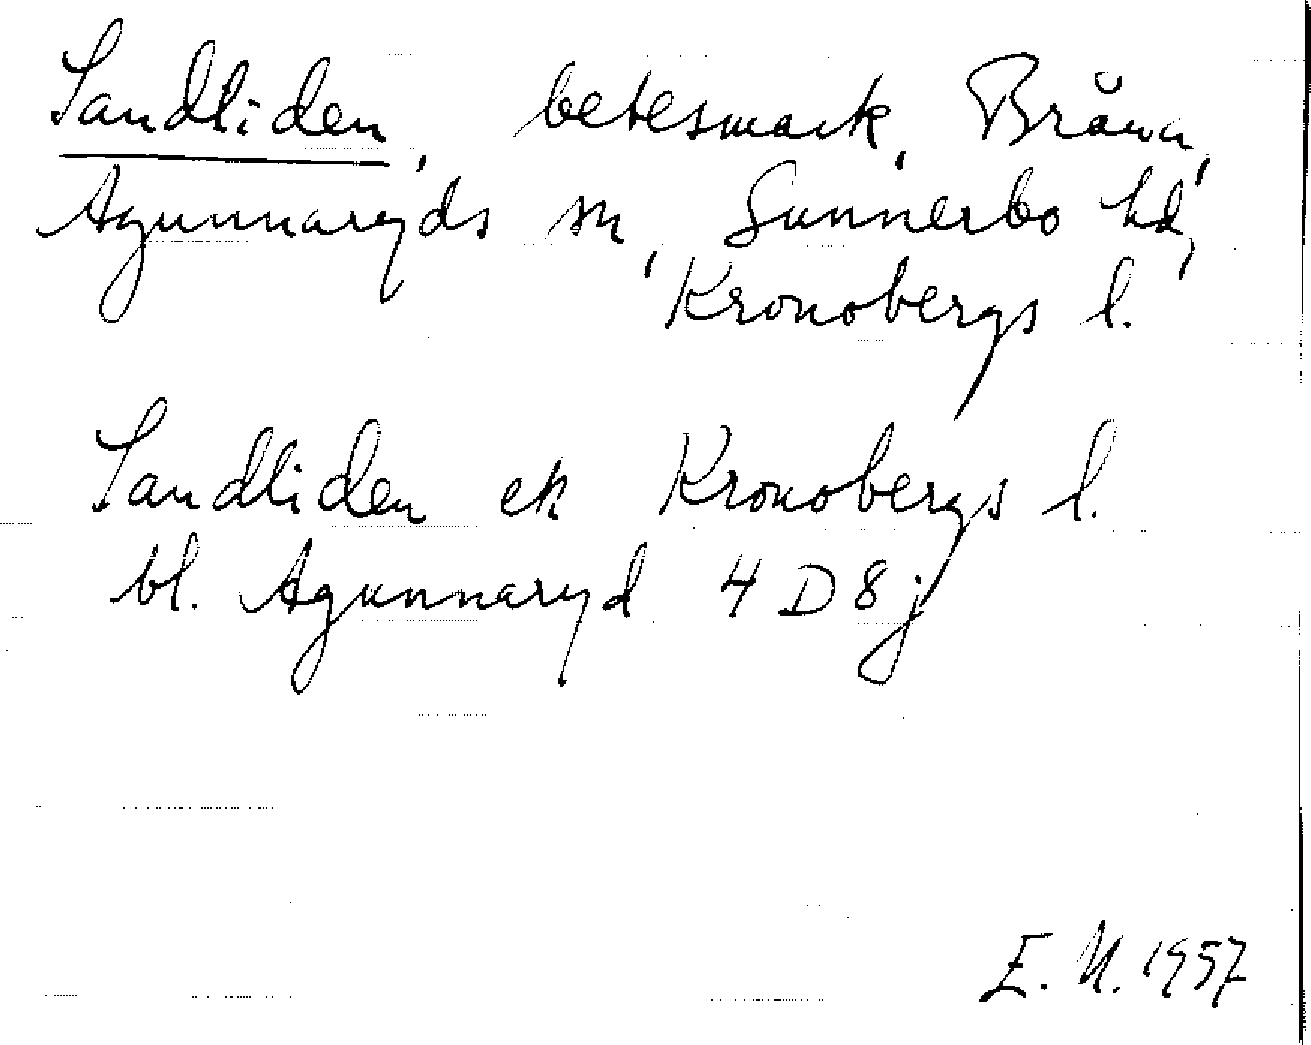 Sandliden, betesmark, Bråna,
Agunnaryds sn, Sunnerbo hd,
Kronobergs l.
Sandliden ek Kronobergs l.
bl. Agunnaryd 4 D 8 j
E. N. 1957